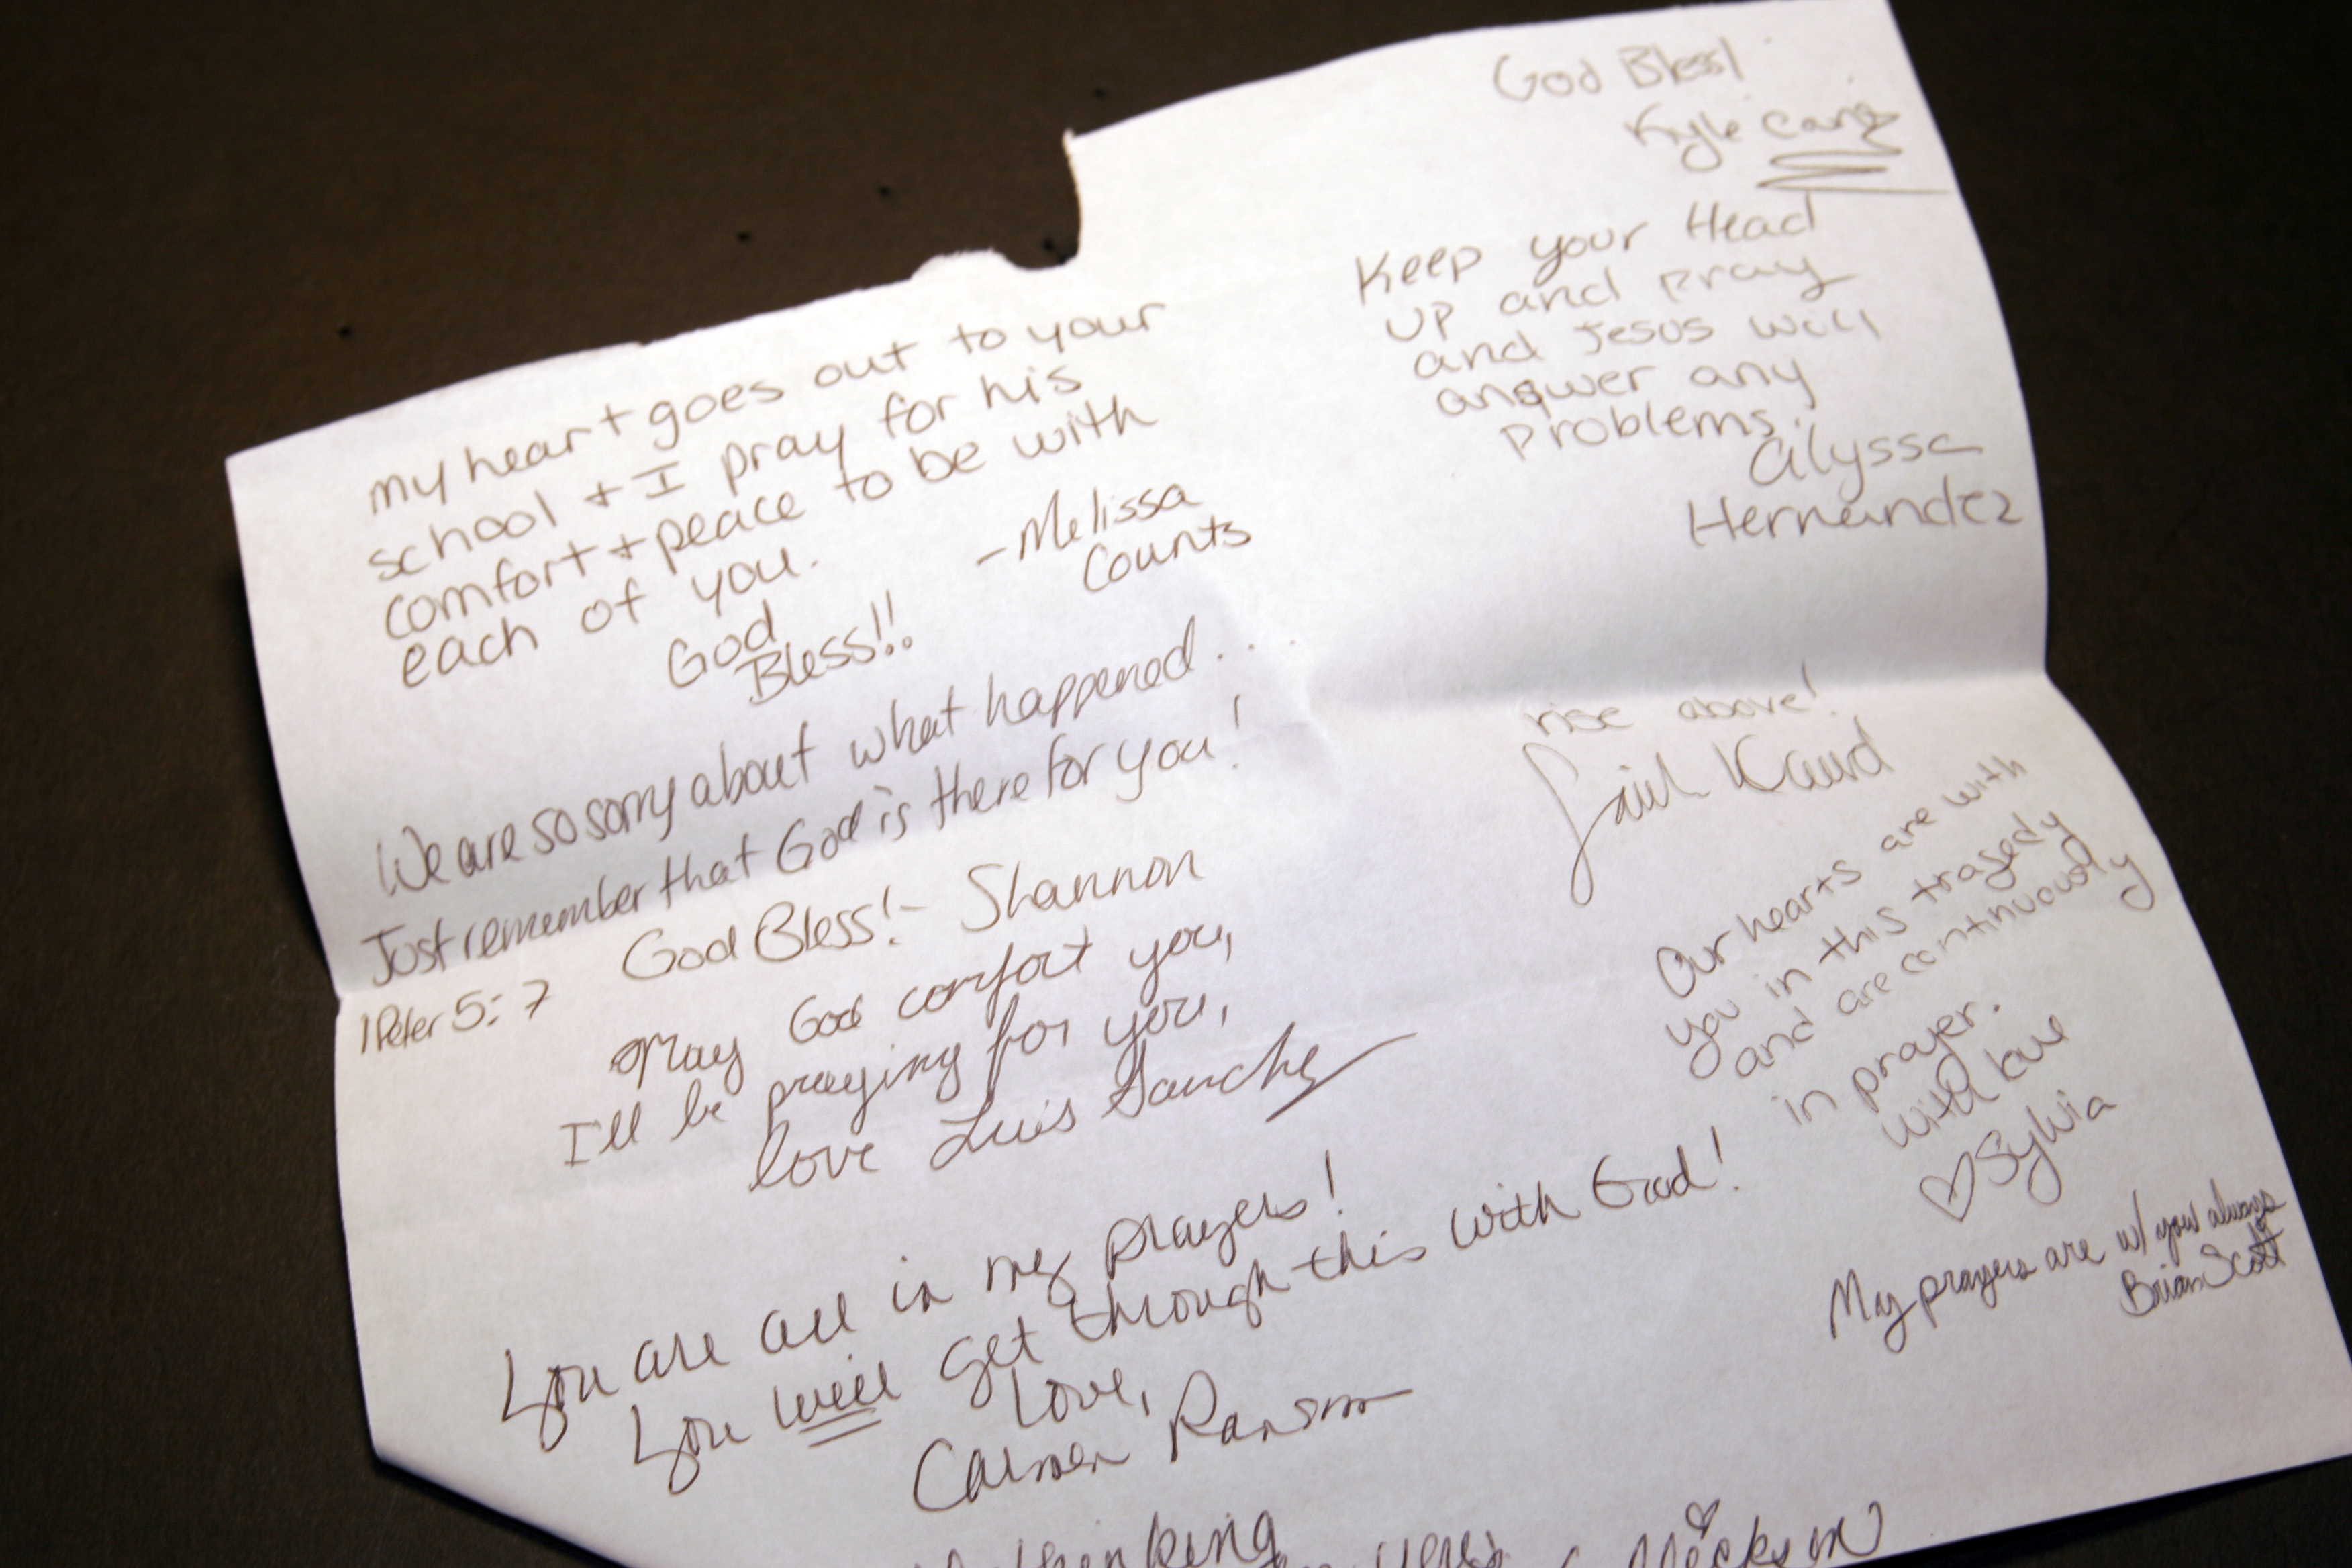 God Bless!
Kyle
Keep your Head
up and pray
and Jesus will
answer any
problems.
Alyssa
Hernandez
my heart goes out to your
school + I pray for his
comfort + peace to be with
each of you.
God
Bless!!
-Melissa
Counts
We are so sorry about what happened...
Just remember that God is there for you!
1 Peter 5:7 God Bless!- Shannon
May God comfort you,
I'll be praying for you,
love Luis Sanchez
rise above!
Our hearts are with
you in this tragedy
and are continuously
in prayer.
with love
♡Sylvia
My prayers are w/ you always
Brian Scott
You are all in my prayers!
You will get through this with God!
Love,
Carmen Ransom
thinking